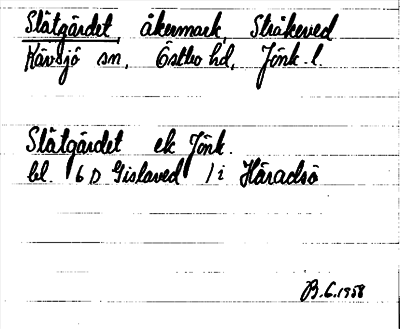 Slätgärdet, åkermark, Stråkeved
Kävsjö sn, Östbo hd, Jönk. l.
Slätgärdet ek Jönk.
bl. 6 D Gislaved 1 i Häradsö
B.G. 1958